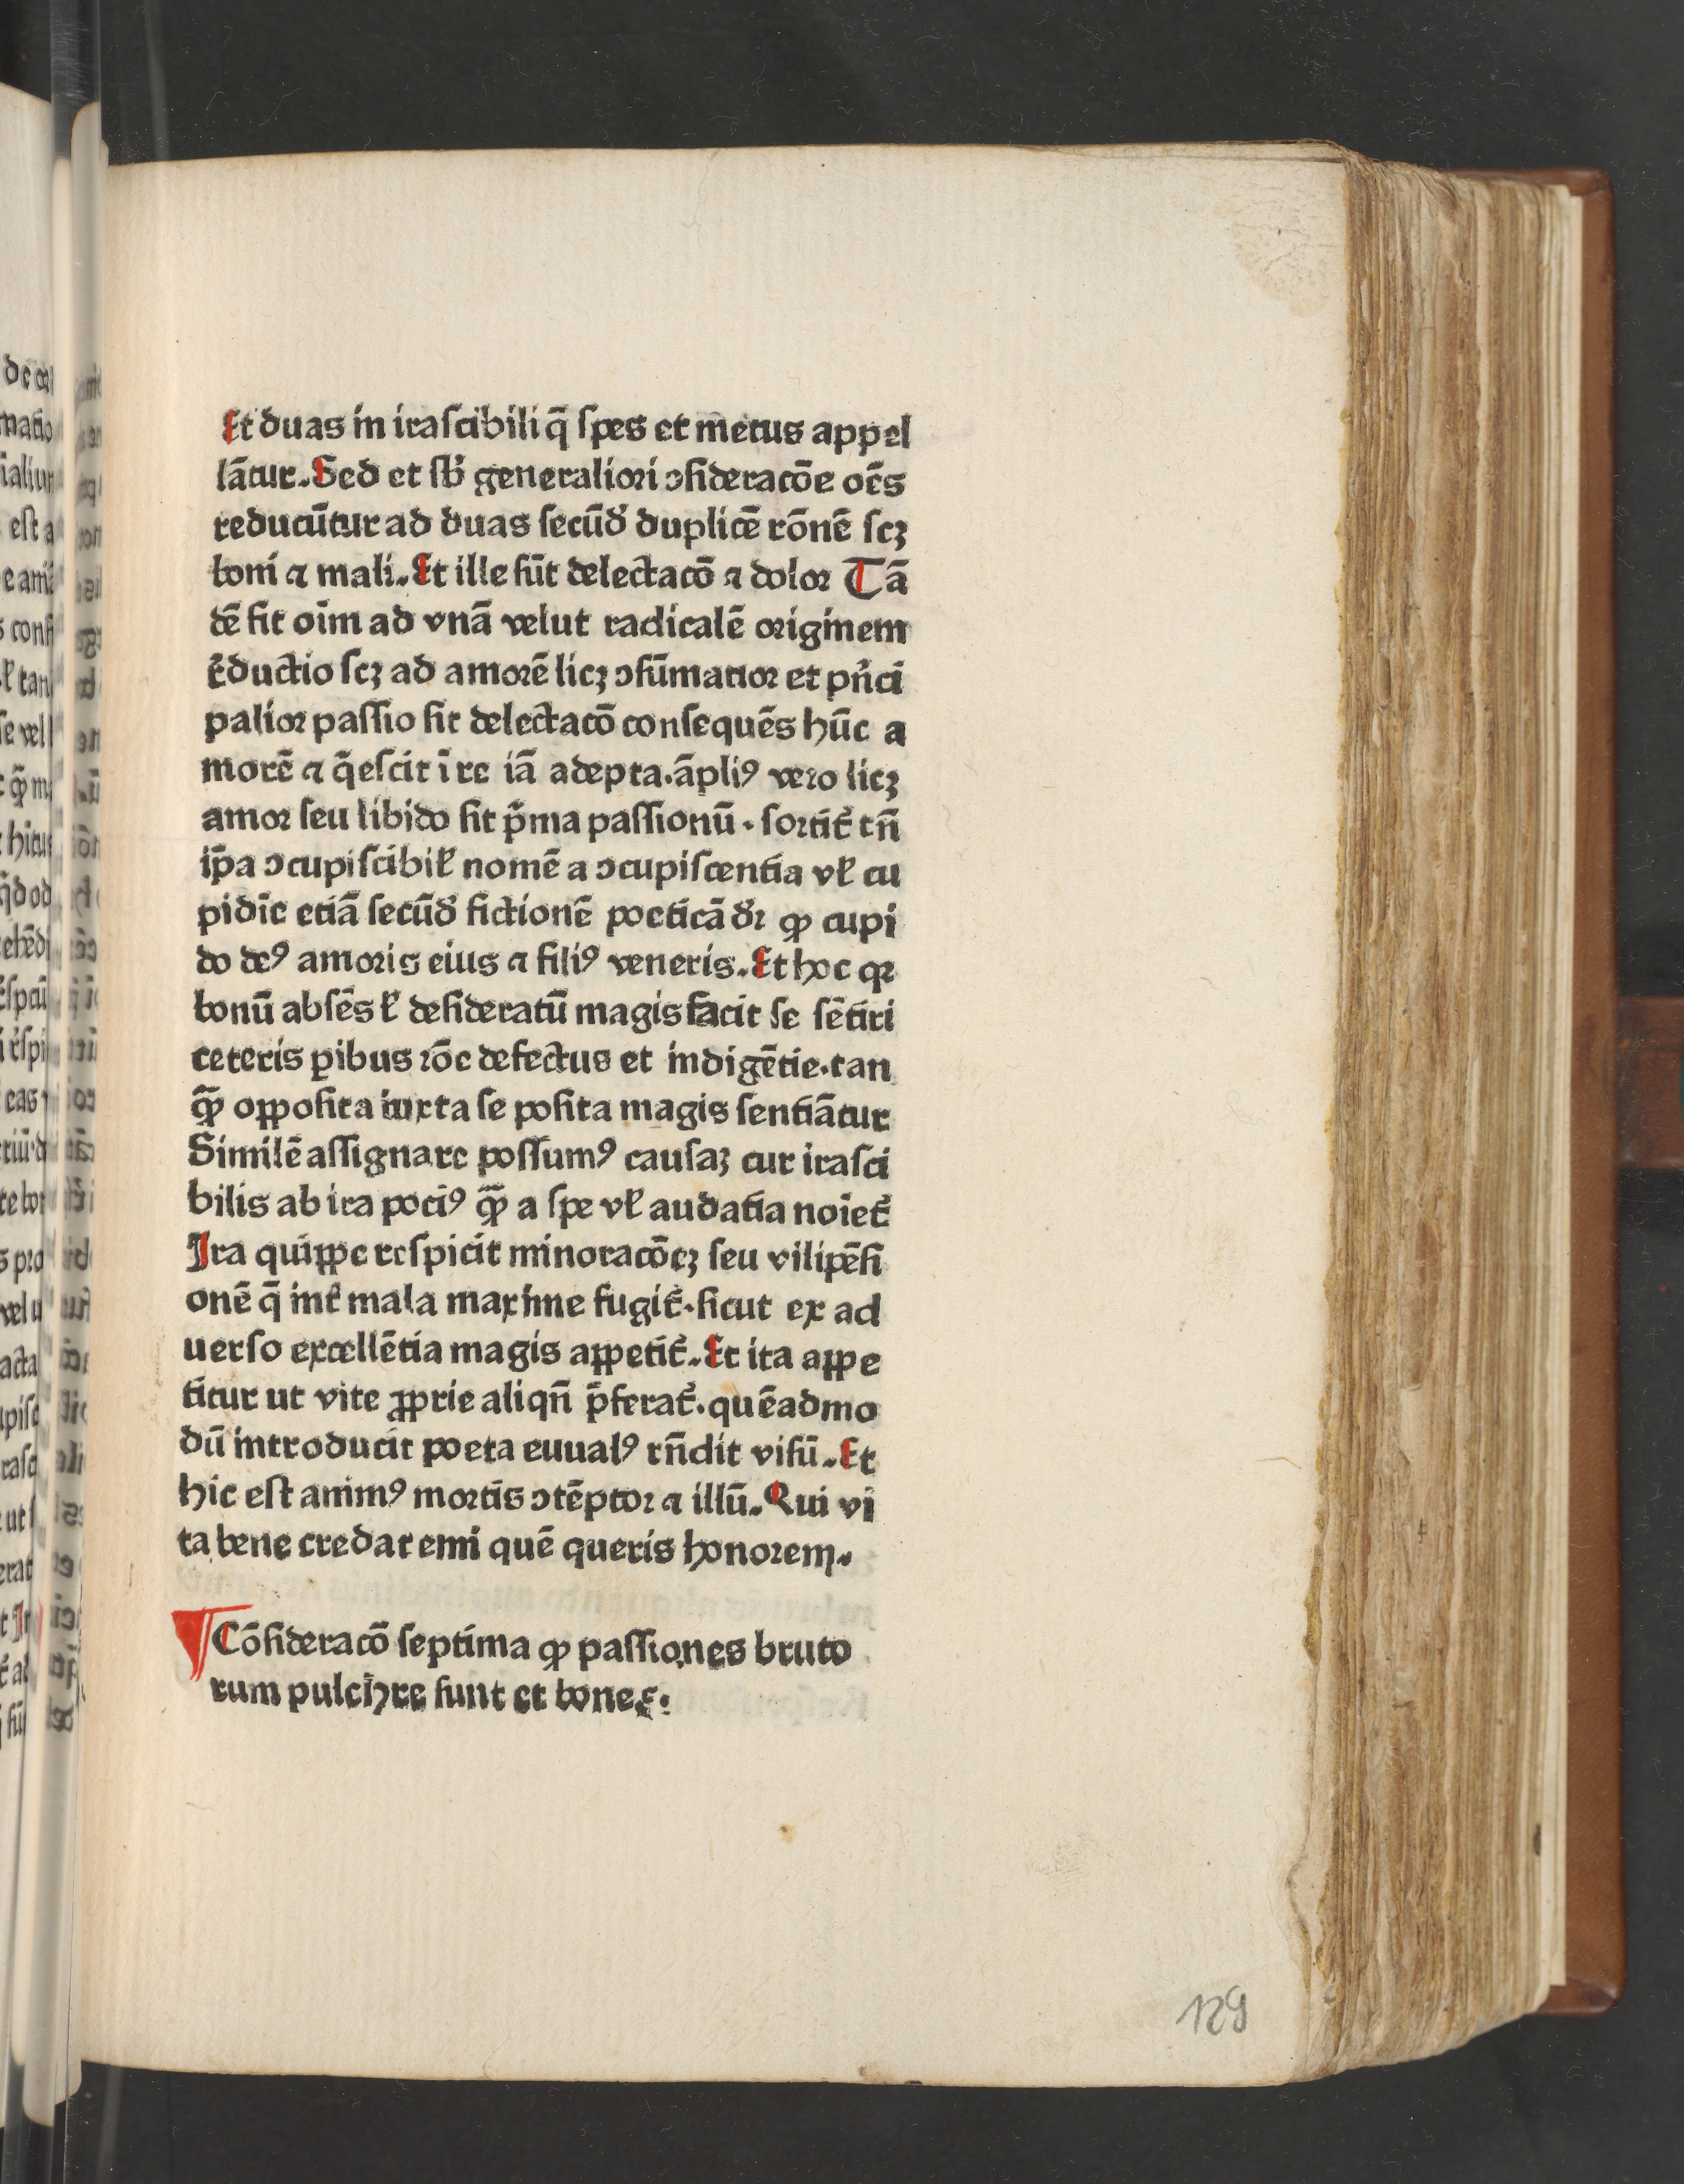 Et duas in iraſcibili q̄ ſpes et metus appel
lātur. Sed et ſb̾ generaliori ↄſideracōe oēs
reducūtur ad duas ſecūd̾ duplicē rōnē ſcꝫ
boni ⁊ mali. Et ille ſūt delectacō ⁊ dolor Tā
dē fit oīm ad vnā velut radicalē originem
r̾ductio ſcꝫ ad amorē licꝫ ↄſūmatior et pn̾ci
palior paſſio ſit delectacō conſequēs hūc a
morē ⁊ q̄eſcit ī re iā adepta. āpliꝰ vero licꝫ
amor ſeu libido ſit p̄ma paſſionū. ſortit̾ tn̄
ip̄a ↄcupiſcibil̾ nomē a ↄcupiſcentia vl̾ cu
pidīe etiā ſecūd̾ fictionē poeticā d̾r ꝙ cupi
do deꝰ amoris eius ⁊ filiꝰ veneris. Et hoc qꝛ
bonū abſēs ł deſideratū magis facit ſe ſētiri
ceteris ꝑibus rōe defectus et indigētie. tan
ꝙ̄ oppoſita iuxta ſe poſita magis ſentiātur
Similē aſſignare poſſumꝰ cauſaꝫ cur iraſci
bilis ab ira pociꝰ ꝙ̄ a ſpe vl̾ audatia noīet̾
Ira quippe reſpicit minoracōeꝫ ſeu vilipēſi
onē q̄ int̾ mala maxime fugit̾. ſicut ex ad
uerſo excellētia magis appetit̾. Et ita appe
titur ut vite ꝓprie aliqn̄ p̄ferat̾. quēadmo
dū introducit poeta euualꝰ rn̄dit viſū. Et
hic eſt animꝰ mortis ↄtēptor ⁊ illū. Qui vi
ta bene credat emi quē queris honorem.
¶ Cōſideracō ſeptima ꝙ paſſiones bruto
rum pulchre ſunt et bone ⁊.
129